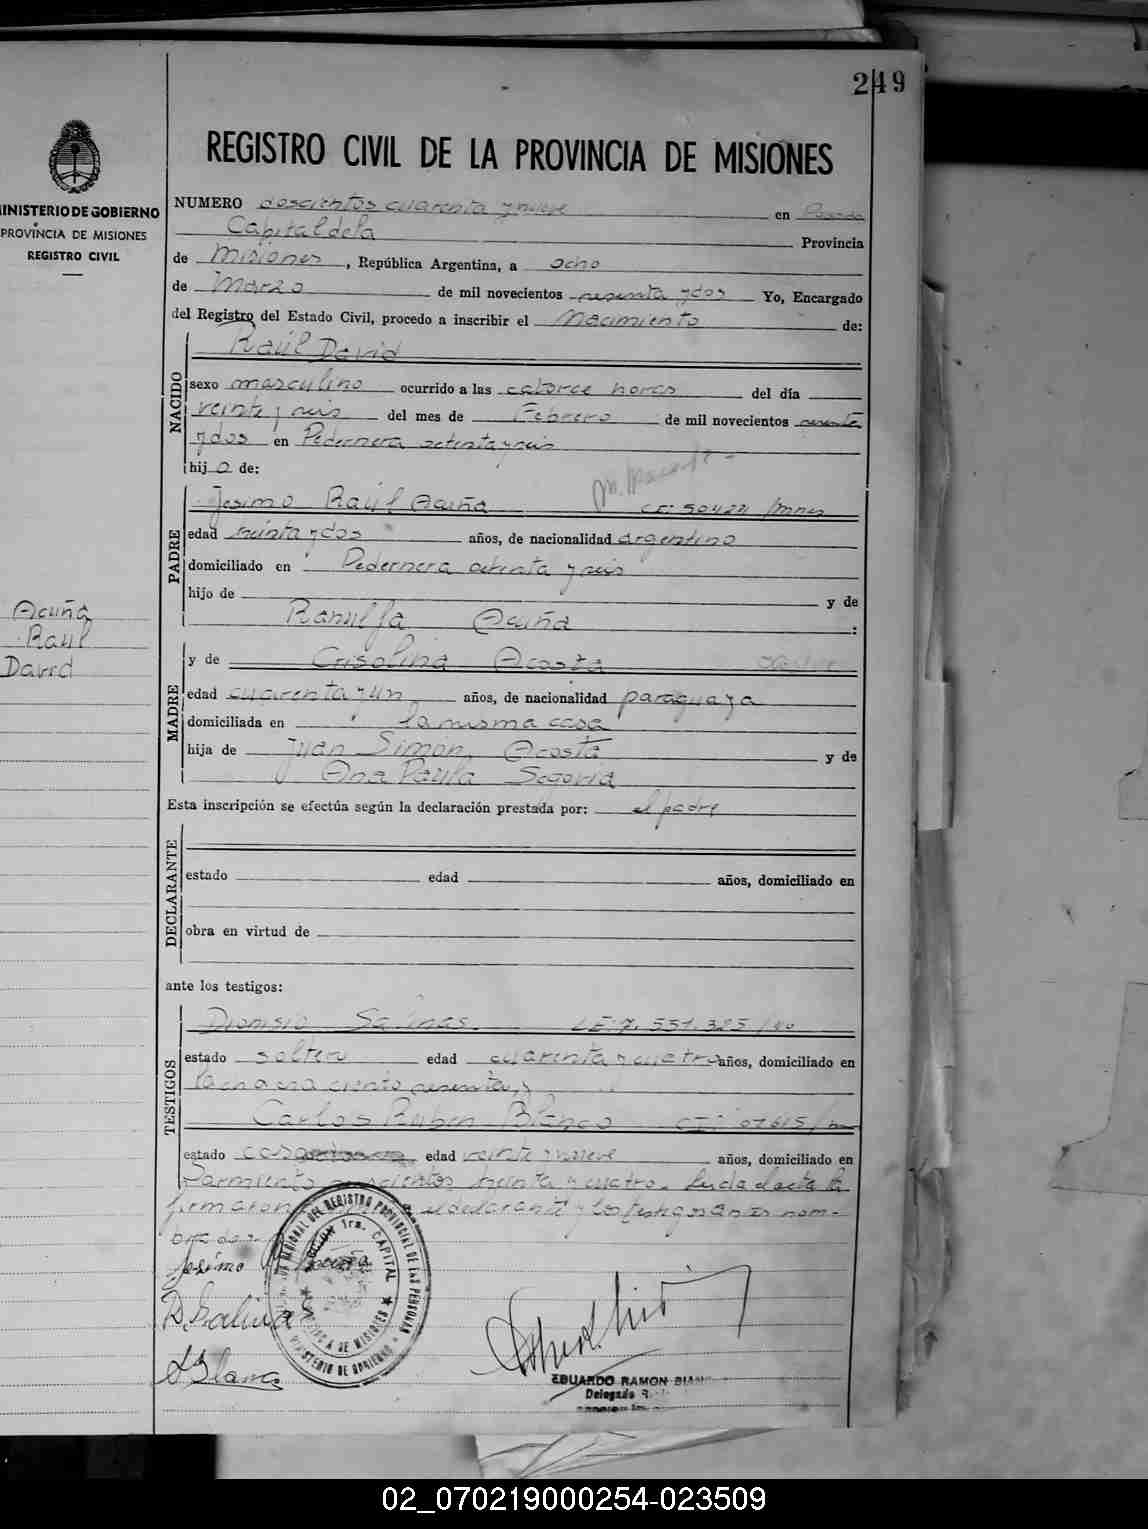 249
REGISTRO CIVIL DE LA PROVINCIA DE MISIONES
MINISTERIO DE GOBIERNO
PROVINCIA DE MISIONES
REGISTRO CIVIL
NUMERO doscientos cuarenta y nueve en Posadas
Capital de la Provincia
de Misiones, República Argentina, a ocho
de Marzo de mil novecientos sesenta y dos Yo, Encargado
del Registro del Estado Civil, procedo a inscribir el Nacimiento de:
NACIDO
Raúl David
sexo masculino ocurrido a las catorce horas del día
veinte y seis del mes de Febrero de mil novecientos sesenta
y dos en Pedernera ochenta y seis
hijo de:
PADRE
Jesimo Raúl Acuña
edad treinta y dos años, de nacionalidad argentino
domiciliado en Pedernera ochenta y seis
hijo de y de
Ranulfa Acuña :
Acuña
Raúl
David
MADRE
y de Crisolina Acosta
edad cuarenta y un años, de nacionalidad paraguaya
domiciliada en la misma casa
hija de Juan Simón Acosta y de
Ana Paula Segovia
Esta inscripción se efectúa según la declaración prestada por: el padre
DECLARANTE
estado edad años, domiciliado en
obra en virtud de
ante los testigos:
TESTIGOS
Dionisio Salinas LE: 7.551.325
estado soltero edad cuarenta y cuatro años, domiciliado en
ciento sesenta y
Carlos Ruben Blanco
estado casado edad veinte y nueve años, domiciliado en
Sarmiento treinta y cuatro. Leida el acta la
firmaron el declarante y los testigos antes nom-
brados.
Jesimo Acuña
D. Salinas
Blanco
EDUARDO RAMON
Delegado
02_070219000254-023509